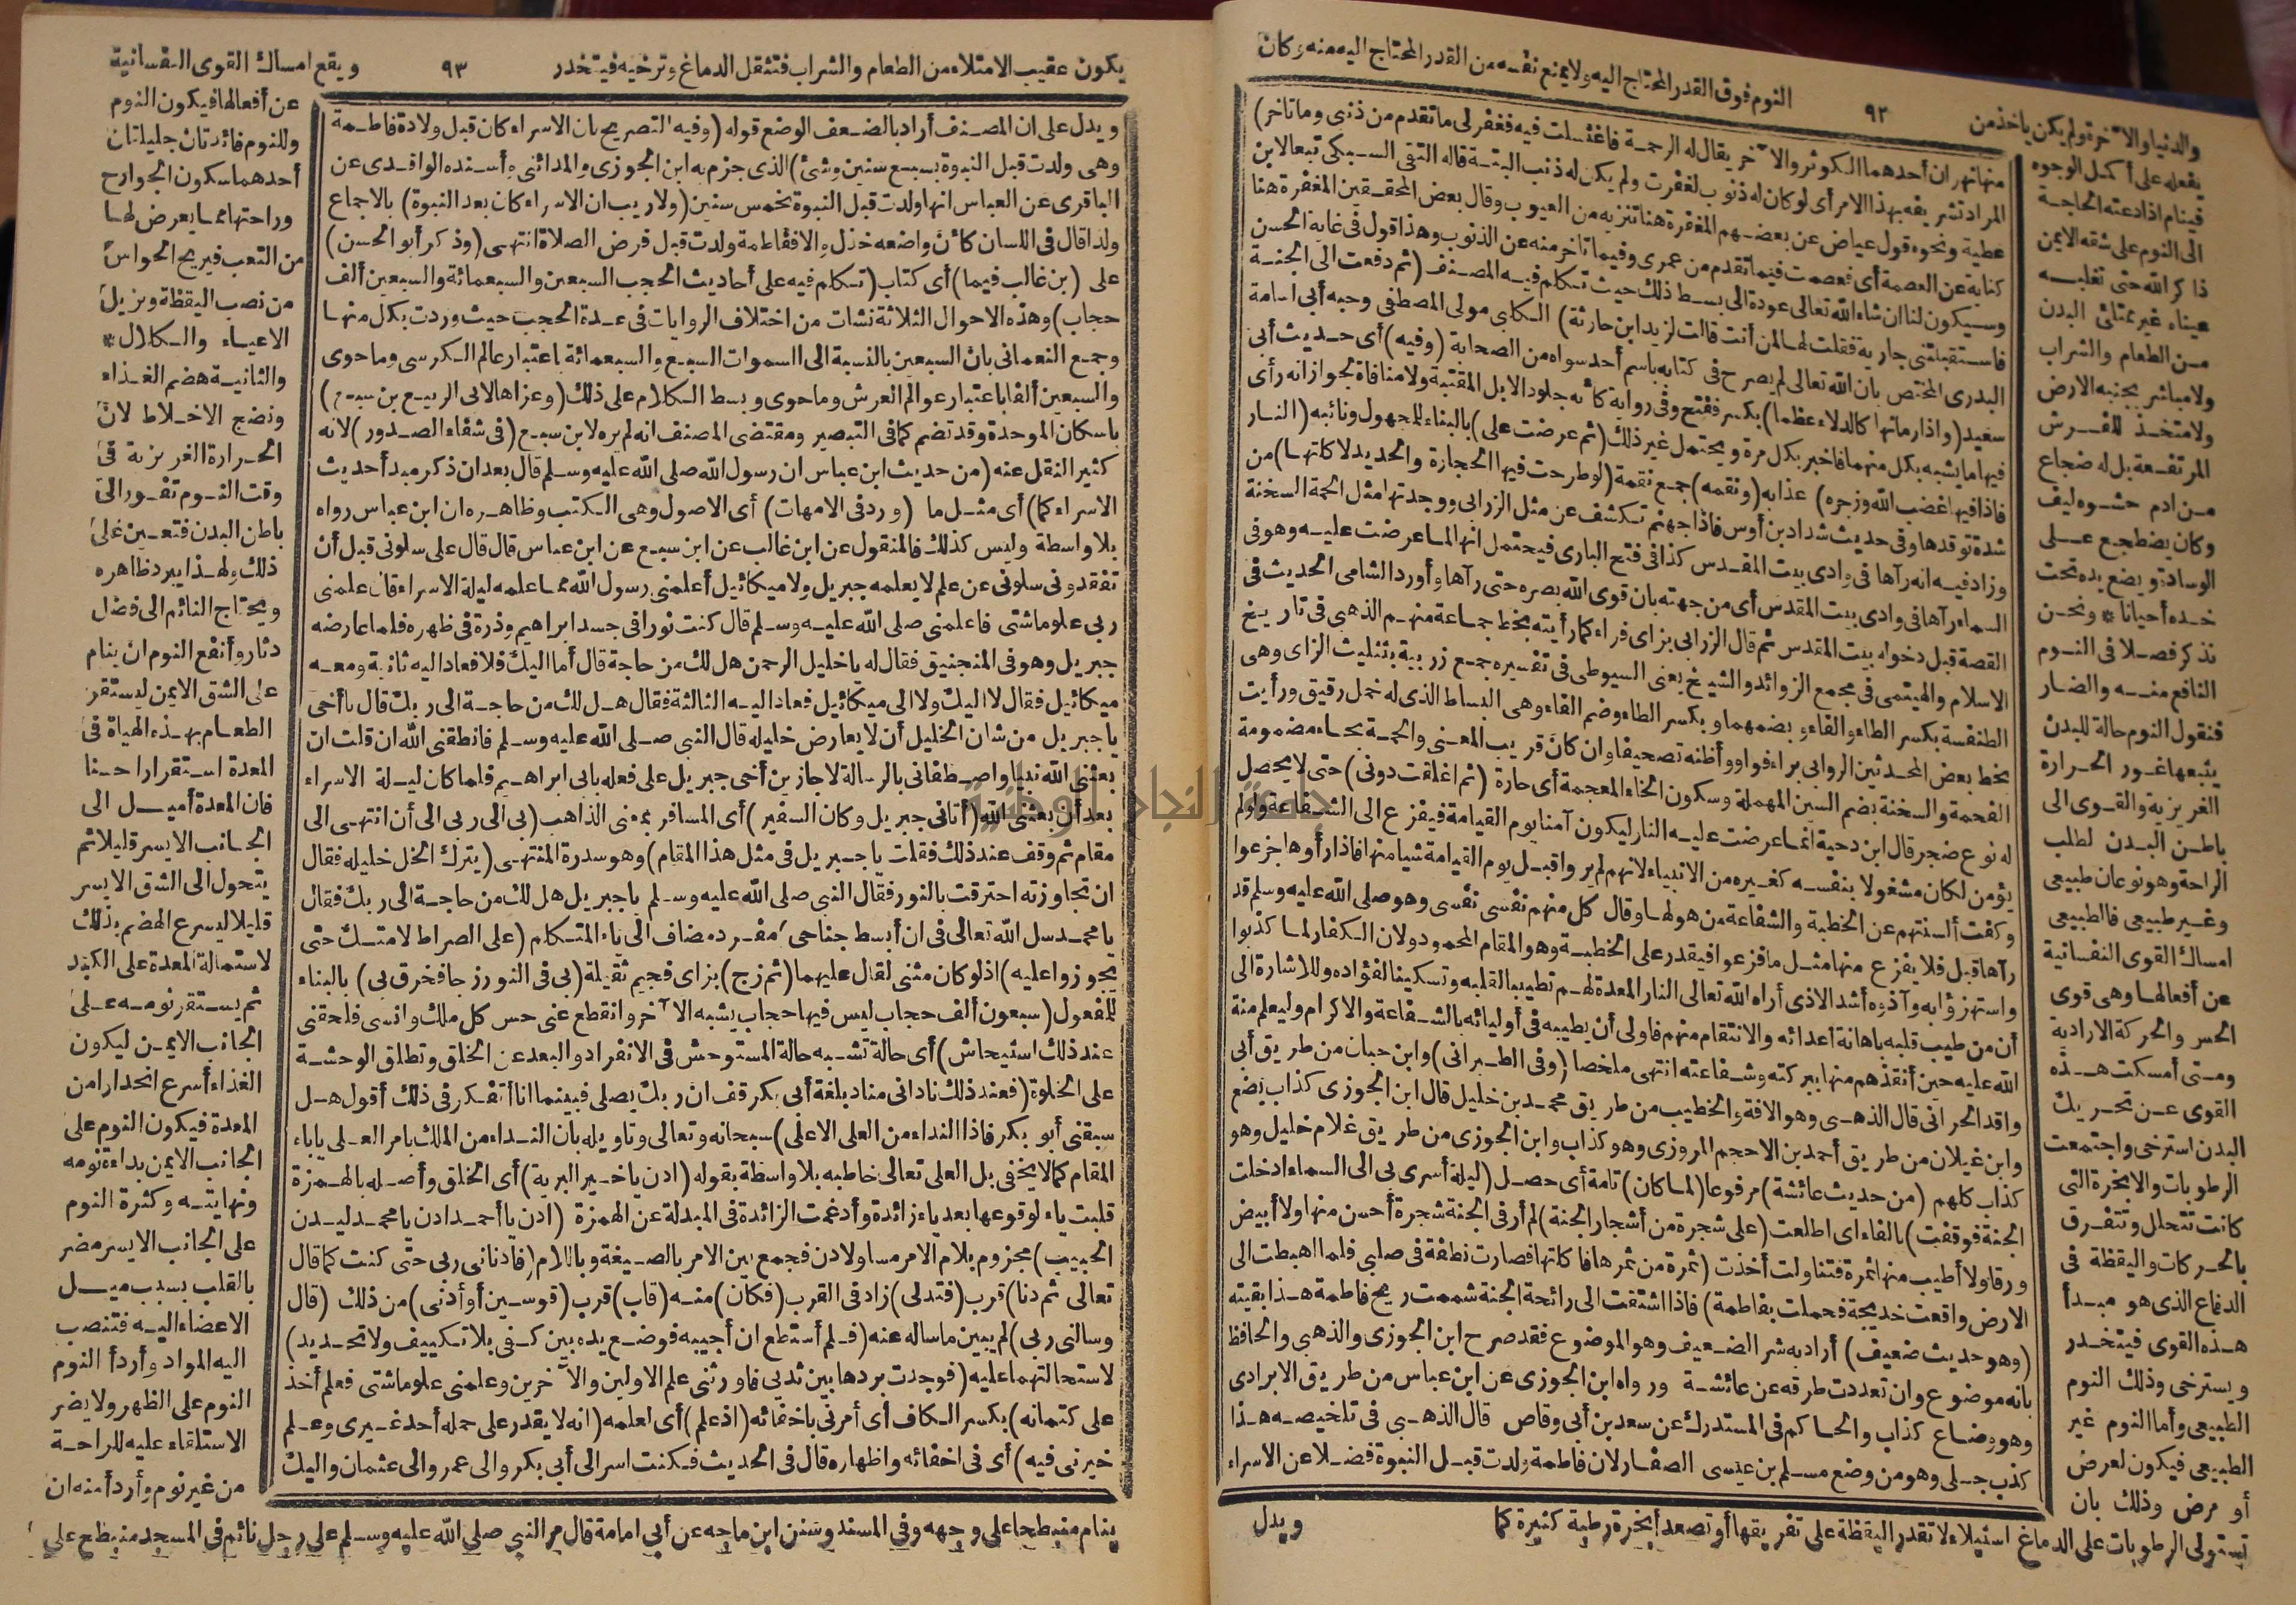 والدنيا والآخرة ولم يكن يأخذ من ٩٢ النوم فوق القدر المحتاج اليه ولا يمنع نفسه من القدر المحتاج اليه منه وكان
يفعله على أكمل الوجوه
فينام اذا دعته الحاجة
الى النوم على شقه الايمن
ذاكر الله حتى تغلبه
عيناه غير ممتلئ البدن
من الطعام والشراب
ولا مباشر بجنبه الارض
ولا متخذ للفرش
المرتفعة بل له ضجاع
من ادم حشوه ليف
وكان يضطجع على
الوسادة ويضع يده تحت
خده أحيانا * ونحن
نذكر فصلا فى النوم
النافع منه والضار
فنقول النوم حالة للبدن
يتبعها غور الحرارة
الغريزية والقوى الى
باطن البدن لطلب
الراحة وهو نوعان طبيعى
وغير طبيعى فالطبيعى
امساك القوى النفسانية
عن أفعالها وهى قوى
الحس والحركة الارادية
ومتى أمسكت هذه
القوى عن تحريك
البدن استرخى واجتمعت
الرطوبات والابخرة التى
كانت تتحلل وتتفرق
بالحركات واليقظة فى
الدماغ الذى هو مبدأ
هذه القوى فيتخدر
ويسترخى وذلك النوم
الطبيعى وأما النوم غير
الطبيعى فيكون لعرض
أو مرض وذلك بان
تستولى الرطوبات على الدماغ استيلاء لا تقدر اليقظة على تفريقها أو تصعد أبخرة رطبة كثيرة كما
منها نهران أحدهما الكوثر والآخر يقال له الرحمة فاغتسلت فيه فغفر لى ما تقدم من ذنبى وما تأخر)
المراد تشريفه بهذا الامر أى لو كان له ذنوب لغفرت ولم يكن له ذنب البتة قاله التقى السبكى تبعا لابن
عطية ونحوه قول عياض عن بعضهم المغفرة هنا تنزيه من العيوب وقال بعض المحققين المغفرة هنا
كناية عن العصمة أى فعصمت فيما تقدم من عمرى وفيما تأخر منه عن الذنوب وهذا قول فى غاية الحسن
وسيكون لنا ان شاء الله تعالى عودة الى بسط ذلك حيث تكلم فيه المصنف (ثم دفعت الى الجنة
فاستقبلتنى جارية فقلت لها لمن أنت قالت لزيد ابن حارثة) الكلبى مولى المصطفى وحبه أبى اسامة
البدرى المختص بان الله تعالى لم يصرح فى كتابه باسم أحد سواه من الصحابة (وفيه) أى حديث أبى
سعيد (واذا رمانها كالدلاء عظما) بكسر ففتح وفى رواية كأنه جلود الابل المقتبة ولا منافاة لجواز انه رأى
فيها ما يشبه بكل منهما فاخبر بكل مرة ويحتمل غير ذلك (ثم عرضت على) بالبناء للمجهول ونائبه (النار
فاذا فيها غضب الله وزجره) عذابه (ونقمه) جمع نقمة (لو طرحت فيها الحجارة والحديد لاكلتها) من
شدة توقدها وفى حديث شداد بن أوس فاذا جهنم تكشف عن مثل الزرابى ووجدتها مثل الحمة السخنة
وزاد فيه انه رآها فى وادى بيت المقدس كذا فى فتح البارى فيحتمل انها لما عرضت عليه وهو فى
السماء رآها فى وادى بيت المقدس أى من جهته بان قوى الله بصره حتى رآها وأورد الشامى الحديث فى
القصة قبل دخوله بيت المقدس ثم قال الزرابى بزاى فراء كما رأيته بخط جماعة منهم الذهبى فى تاريخ
الاسلام والهيتمى فى مجمع الزوائد والشيخ يعنى السيوطى فى تفسيره جمع زربية بتثليث الزاى وهى
الطنفسة بكسر الطاء والفاء وبضمهما وبكسر الطاء وضم الفاء وهى البساط الذى له خمل رقيق ورأيت
بخط بعض المحدثين الروابى براء فواو وأظنه تصحيفا وان كان قريب المعنى والحمة بحاء مضمومة
الفحمة والسخنة بضم السين المهملة وسكون الخاء المعجمة أى حارة (ثم اغلقت دونى) حتى لا يحصل
له نوع ضجر قال ابن دحية انما عرضت عليه النار ليكون آمنا يوم القيامة فيفزع الى الشفاعة ولو لم
يؤمن لكان مشغولا بنفسه كغيره من الانبياء لانهم لم يروا قبل يوم القيامة شيا منها فاذا رأوها جزعوا
وكفت ألسنتهم عن الخطبة والشفاعة من هولها وقال كل منهم نفسى نفسى وهو صلى الله عليه وسلم قد
رآها قبل فلا يفزع منها مثل ما فزعوا فيقدر على الخطبة وهو المقام المحمود ولان الكفار لما كذبوا
واستهزؤا به وآذوه أشد الاذى أراه الله تعالى النار المعدة لهم تطييبا لقلبه وتسكينا لفؤاده وللاشارة الى
أن من طيب قلبه باهانة أعدائه والانتقام منهم فاولى أن يطيبه فى أوليائه بالشفاعة والاكرام وليعلم منة
الله عليه حين أنقذهم منها ببركته وشفاعته انتهى ملخصا (وفى الطبرانى) وابن حبان من طريق أبى
واقد الحرانى قال الذهبى وهو الآفة والخطيب من طريق محمد بن خليل قال ابن الجوزى كذاب يضع
وابن غيلان من طريق أحمد بن الاحجم المروزى وهو كذاب وابن الجوزى من طريق غلام خليل وهو
كذاب كلهم (من حديث عائشة) مرفوعا (لما كان) تامة أى حصل (ليلة أسرى بى الى السماء ادخلت
الجنة فوقفت) بالفاء اى اطلعت (على شجرة من أشجار الجنة) لم أر فى الجنة شجرة أحسن منها ولا أبيض
ورقا ولا أطيب منها ثمرة فتناولت أخذت (ثمرة من ثمرها فاكلتها فصارت نطفة فى صلبى فلما اهبطت الى
الارض واقعت خديجة فحملت بفاطمة) فاذا اشتقت الى رائحة الجنة شممت ريح فاطمة هذا بقيته
(وهو حديث ضعيف) أراد به شر الضعيف وهو الموضوع فقد صرح ابن الجوزى والذهبى والحافظ
بانه موضوع وان تعددت طرقه عن عائشة ورواه ابن الجوزى عن ابن عباس من طريق الابرادى
وهو وضاع كذاب والحاكم فى المستدرك عن سعد بن أبى وقاص قال الذهبى فى تلخيصه هذا
كذب جلى وهو من وضع مسلم بن عيسى الصفار لان فاطمة ولدت قبل النبوة فضلا عن الاسراء
ويدل
يكون عقيب الامتلاء من الطعام والشراب فتثقل الدماغ وترخيه فيتخدر ٩٣ ويقع امساك القوى النفسانية
ويدل على ان المصنف أراد بالضعف الوضع قوله (وفيه التصريح بان الاسراء كان قبل ولادة فاطمة
وهى ولدت قبل النبوة بسبع سنين وشئ) الذى جزم به ابن الجوزى والمدائنى وأسنده الواقدى عن
الباقرى عن العباس انها ولدت قبل النبوة بخمس سنين (ولا ريب ان الاسراء كان بعد النبوة) بالاجماع
ولذا قال فى اللسان كأن واضعه خذل والا ففاطمة ولدت قبل فرض الصلاة انتهى (وذكر أبو الحسن)
على (بن غالب فيما) أى كتاب (تكلم فيه على أحاديث الحجب السبعين والسبعمائة والسبعين ألف
حجاب) وهذه الاحوال الثلاثة نشات من اختلاف الروايات فى عدة الحجب حيث وردت بكل منها
وجمع النعمانى بان السبعين بالنسبة الى السموات السبع والسبعمائة باعتبار عالم الكرسى وما حوى
والسبعين ألفا باعتبار عوالم العرش وما حوى وبسط الكلام على ذلك (وعزاها لابى الربيع بن سبع)
باسكان الموحدة وقد تضم كما فى التبصير ومقتضى المصنف انه لم يره لابن سبع (فى شفاء الصدور) لانه
كثير النقل عنه (من حديث ابن عباس ان رسول الله صلى الله عليه وسلم قال بعد ان ذكر مبدأ حديث
الاسراء كما) أى مثل ما (ورد فى الامهات) أى الاصول وهى الكتب وظاهره ان ابن عباس رواه
بلا واسطة وليس كذلك فالمنقول عن ابن غالب عن ابن سبع عن ابن عباس قال قال على سلونى قبل أن
تفقدونى سلونى عن علم لا يعلمه جبريل ولا ميكائيل أعلمنى رسول الله مما علمه ليلة الاسراء قال علمنى
ربى علوما شتى فاعلمنى صلى الله عليه وسلم قال كنت نورا فى جسد ابراهيم وذرة فى ظهره فلما عارضه
جبريل وهو فى المنجنيق فقال له يا خليل الرحمن هل لك من حاجة قال أما اليك فلا فعاد اليه ثانية ومعه
ميكائيل فقال لا اليك ولا الى ميكائيل فعاد اليه الثالثة فقال هل لك من حاجة الى ربك قال يا أخى
يا جبريل من شان الخليل أن لا يعارض خليله قال النبى صلى الله عليه وسلم فانطقنى الله ان قلت ان
بعثنى الله نبيا واصطفانى بالرسالة لاجازين أخى جبريل على فعله بابى ابراهيم فلما كان ليلة الاسراء
بعد أن بعثنى الله (أتانى جبريل وكان السفير) أى المسافر بمعنى الذاهب (بى الى ربى الى أن انتهى الى
مقام ثم وقف عند ذلك فقلت يا جبريل فى مثل هذا المقام) وهو سدرة المنتهى (يترك الخل خليله فقال
ان تجاوزته احترقت بالنور فقال النبى صلى الله عليه وسلم يا جبريل هل لك من حاجة الى ربك فقال
يا محمد سل الله تعالى فى ان أبسط جناحى) مفرده مضاف الى ياء المتكلم (على الصراط لامتك حتى
يجوزوا عليه) اذ لو كان مثنى لقال عليهما (ثم زج) بزاى فجيم ثقيلة (بى فى النور زجا فخرق بى) بالبناء
للمفعول (سبعون ألف حجاب ليس فيها حجاب يشبه الآخر وانقطع عنى حس كل ملك وانسى فلحقنى
عند ذلك استيحاش) أى حالة تشبه حالة المستوحش فى الانفراد والبعد عن الخلق وتطلق الوحشة
على الخلوة (فعند ذلك نادانى مناد بلغة أبى بكر قف ان ربك يصلى فبينما انا أتفكر فى ذلك أقول هل
سبقنى أبو بكر فاذا النداء من العلى الاعلى) سبحانه وتعالى وتاويله بان النداء من الملك بامر العلى ياباه
المقام كما لا يخفى بل العلى تعالى خاطبه بلا واسطة بقوله (ادن يا خير البرية) أى الخلق وأصله بالهمزة
قلبت ياء لوقوعها بعد ياء زائدة وأدغمت الزائدة فى المبدلة عن الهمزة (ادن يا أحمد ادن يا محمد ليدن
الحبيب) مجزوم بلام الامر مساو لادن فجمع بين الامر بالصيغة وباللام (فادنانى ربى حتى كنت كما قال
تعالى ثم دنا) قرب (فتدلى) زاد فى القرب (فكان) منه (قاب) قرب (قوسين أو أدنى) من ذلك (قال
وسالنى ربى) لم يبين ما ساله عنه (فلم أستطع ان أجيبه فوضع يده بين كتفى بلا تكييف ولا تحديد)
لاستحالتهما عليه (فوجدت بردها بين ثديى فاورثنى علم الاولين والآخرين وعلمنى علوما شتى فعلم أخذ
على كتمانه) بكسر الكاف أى أمرنى باخفائه (اذ علم) أى لعلمه (انه لا يقدر على حمله أحد غيرى وعلم
خيرنى فيه) أى فى اخفائه واظهاره قال فى الحديث فكنت اسر الى أبى بكر والى عمر والى عثمان واليك
عن أفعالها فيكون النوم
وللنوم فائدتان جليلتان
أحدهما سكون الجوارح
وراحتها مما يعرض لها
من التعب فيريح الحواس
من نصب اليقظة ويزيل
الاعياء والكلال *
والثانية هضم الغذاء
ونضج الاخلاط لان
الحرارة الغريزية فى
وقت النوم تغور الى
باطن البدن فتعين على
ذلك ولهذا يبرد ظاهره
ويحتاج النائم الى فضل
دثار وأنفع النوم ان ينام
على الشق الايمن ليستقر
الطعام بهذه الهيأة فى
المعدة استقرارا حسنا
فان المعدة أميل الى
الجانب الايسر قليلا ثم
يتحول الى الشق الايسر
قليلا ليسرع الهضم بذلك
لاستمالة المعدة على الكبد
ثم يستقر نومه على
الجانب الايمن ليكون
الغذاء أسرع انحدارا من
المعدة فيكون النوم على
الجانب الايمن بداءة نومه
ونهايته وكثرة النوم
على الجانب الايسر مضر
بالقلب بسبب ميل
الاعضاء اليه فتنصب
اليه المواد وأردأ النوم
النوم على الظهر ولا يضر
الاستلقاء عليه للراحة
من غير نوم وأردأ منه ان
ينام منبطحا على وجهه وفى المسند وسنن ابن ماجه عن أبى امامة قال مر النبى صلى الله عليه وسلم على رجل نائم فى المسجد منبطح على